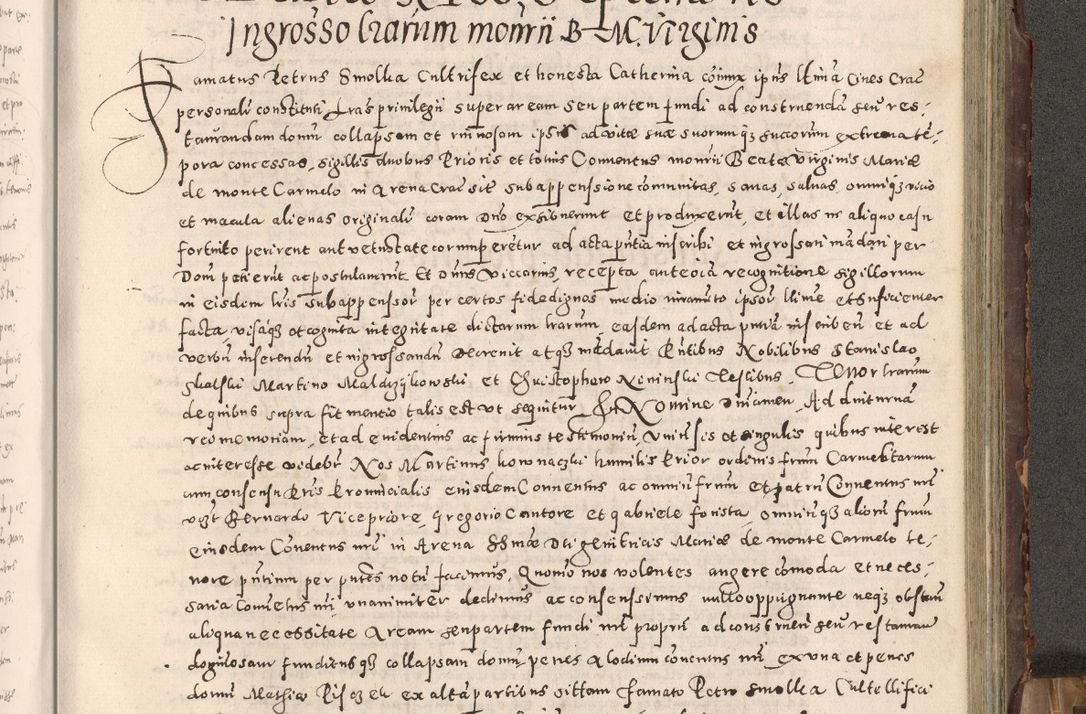 Ingrosso lrarum monrii B. M. Virginis
Famatus Petrus Smolka Cultrifex et honesta Catherina coniux ipius lltima Cives Crac
personalr constituti lras privilegii super aream seu partem fundi ad construendã seu res-
taurandam domũ collapsam et ruinosam ipsis ad vitæ suæ suorum qz succorum extrema tẽ-
pora concessas, sigillis duobus Prioris et totius Conventus monrii Beatæ Virginis Mariæ
de monte Carmelo in Arena Crac sitæ subappensione comunitas, sanas, salvas, omniqz vicio
et macula alienas originalr coram Dno exhibuerunt et produxerũt, et illas ne aliquo casu
fortuito perirent aut vetustate corrumperẽtur ad acta pñtia inscribi et ingrossari mãdari per
Dom petierũt ac postularunt. Et Dnus Viccarius, recepta ante oiã recognitione sigillorum
in eisdem lris subappensoŗ per certos fidedignos medio iuramẽto ipsoŗ llime et sufficienter
facta, visaqz et cognita integritate dictarum lrarum, easdem ad acta pntia inscribeñ et ad
verbũ inserendũ et ingrossandũ Decrevit atqz mãdavit Pñtibus Nobilibus Stanislao
Skalski Martino Maldrzijkowski et Christophoro Nininski Testibus. Tenor lrarum
de quibus supra fit mentio talis est ut sequitur. In Nomine Dni amen. Ad diuturnã
rei memoriam, et ad evidentius ac firmius testimoniũ, Univrsis et singulis quibus interest
ac interesse videbr Nos Martinus kownaczki humilis Prior ordinis frum Carmelitarum
cum consensu Pris Provincialis eiusdem Conventus ac omniũ frum et patrũ Conventus nri
vizt Bernardo Vicepriore, Gregorio Cantore et Gabriele forista, omniũqz alioru frum
eiusdem Cõventus nri in Arena SSmæ Dei genitricis Mariæ de monte Carmelo te-
nore pñtium per pntes notũ facimus, Quomo nos volentes augere cõmoda et neces-
saria Conventus nri unanimiter dedimus ac consensimus nullo oppugnante neqz obstan
aliqua necessitate Aream seu partem fundi nri proprii ad construeñ seu restauran
funditusqz collapsam domũ penes Alodium conentus nri ex una et penes
domũ Mathiæ Piszczek ex altã partibus sittam famato Petro Smolka Cultellifici